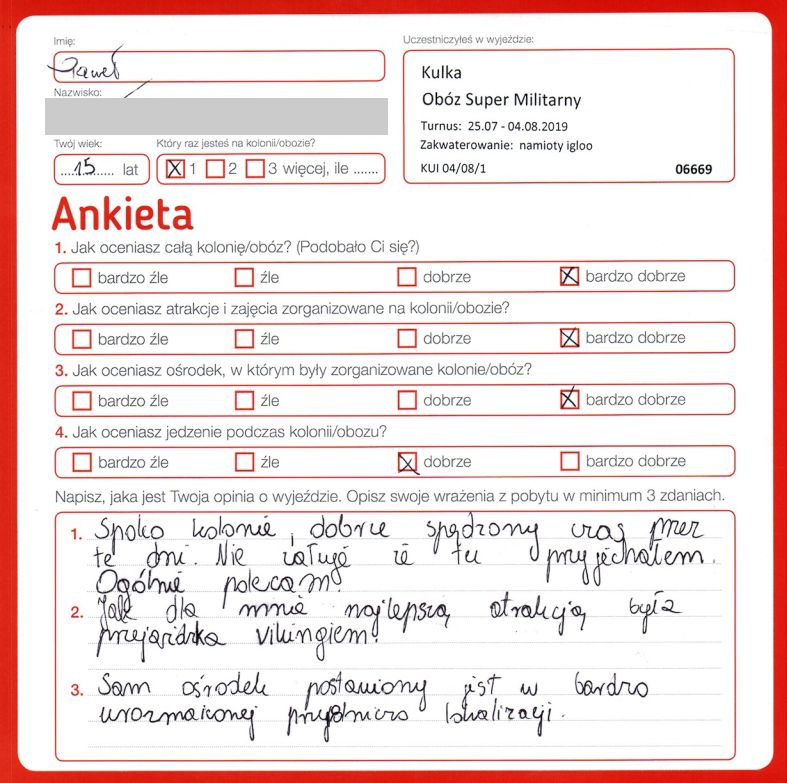 Imię:
Paweł
Nazwisko:
Twój wiek:
15 lat
Który raz jesteś na kolonii/obozie?
X 1 2 3 więcej, ile .......
Uczestniczyłeś w wyjeździe:
Kulka
Obóz Super Militarny
Turnus: 25.07 - 04.08.2019
Zakwaterowanie: namioty igloo
KUI 04/08/1 06669
Ankieta
1. Jak oceniasz całą kolonię/obóz? (Podobało Ci się?)
bardzo źle źle dobrze X bardzo dobrze
2. Jak oceniasz atrakcje i zajęcia zorganizowane na kolonii/obozie?
bardzo źle źle dobrze X bardzo dobrze
3. Jak oceniasz ośrodek, w którym były zorganizowane kolonie/obóz?
bardzo źle źle dobrze X bardzo dobrze
4. Jak oceniasz jedzenie podczas kolonii/obozu?
bardzo źle źle X dobrze bardzo dobrze
Napisz, jaka jest Twoja opinia o wyjeździe. Opisz swoje wrażenia z pobytu w minimum 3 zdaniach.
1. Spoko kolonie, dobrze spędzony czas przez
te dni. Nie żałuję że tu przyjechałem.
Ogólnie polecam!
2. Jak dla mnie najlepszą atrakcją była
przejażdżka vikingiem!
3. Sam ośrodek postawiony jest w bardzo
urozmaiconej przyrodniczo lokalizacji.